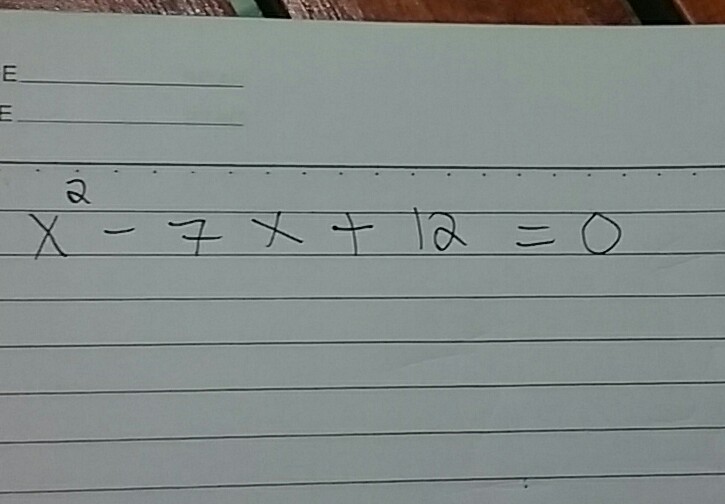 E
E
x² - 7x + 12 = 0